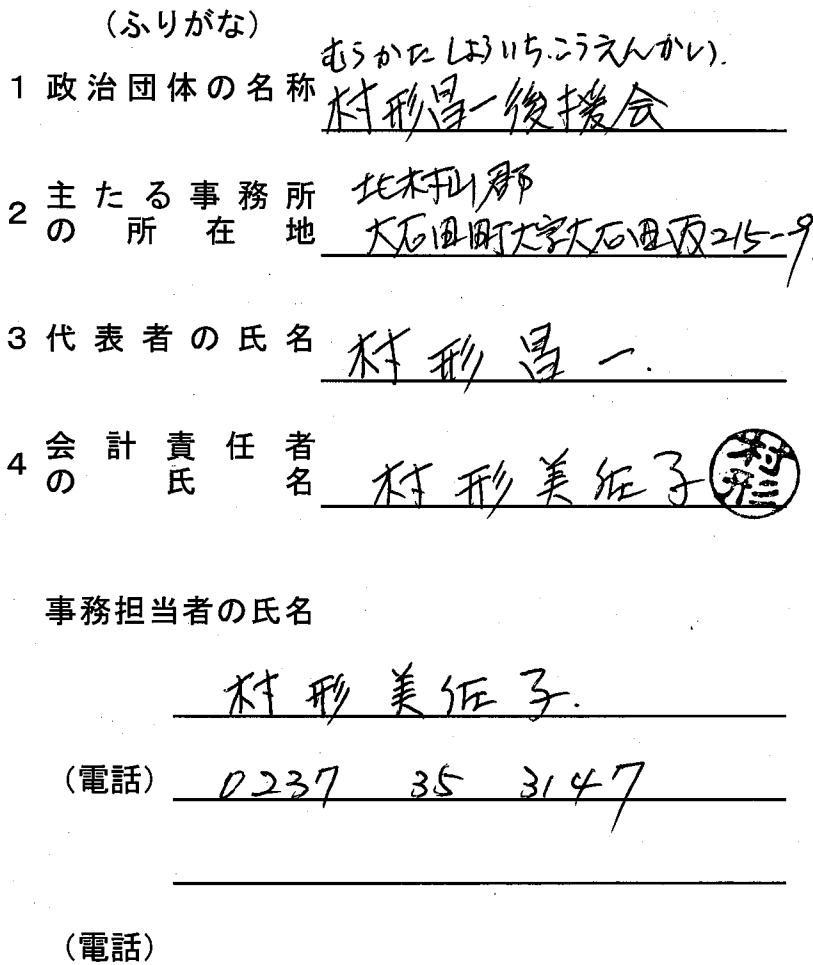 (ふりがな)
むらかた しょういち.こうえんかい.
1 政治団体の名称 村形昌一後援会
2 主たる事務所の所在地 北村山郡
大石田町大字大石田丙215-9
3 代表者の氏名 村形昌一.
4 会計責任者の氏名 村形美佐子 村形
事務担当者の氏名
村形美佐子.
(電話) 0237 35 3147
(電話)